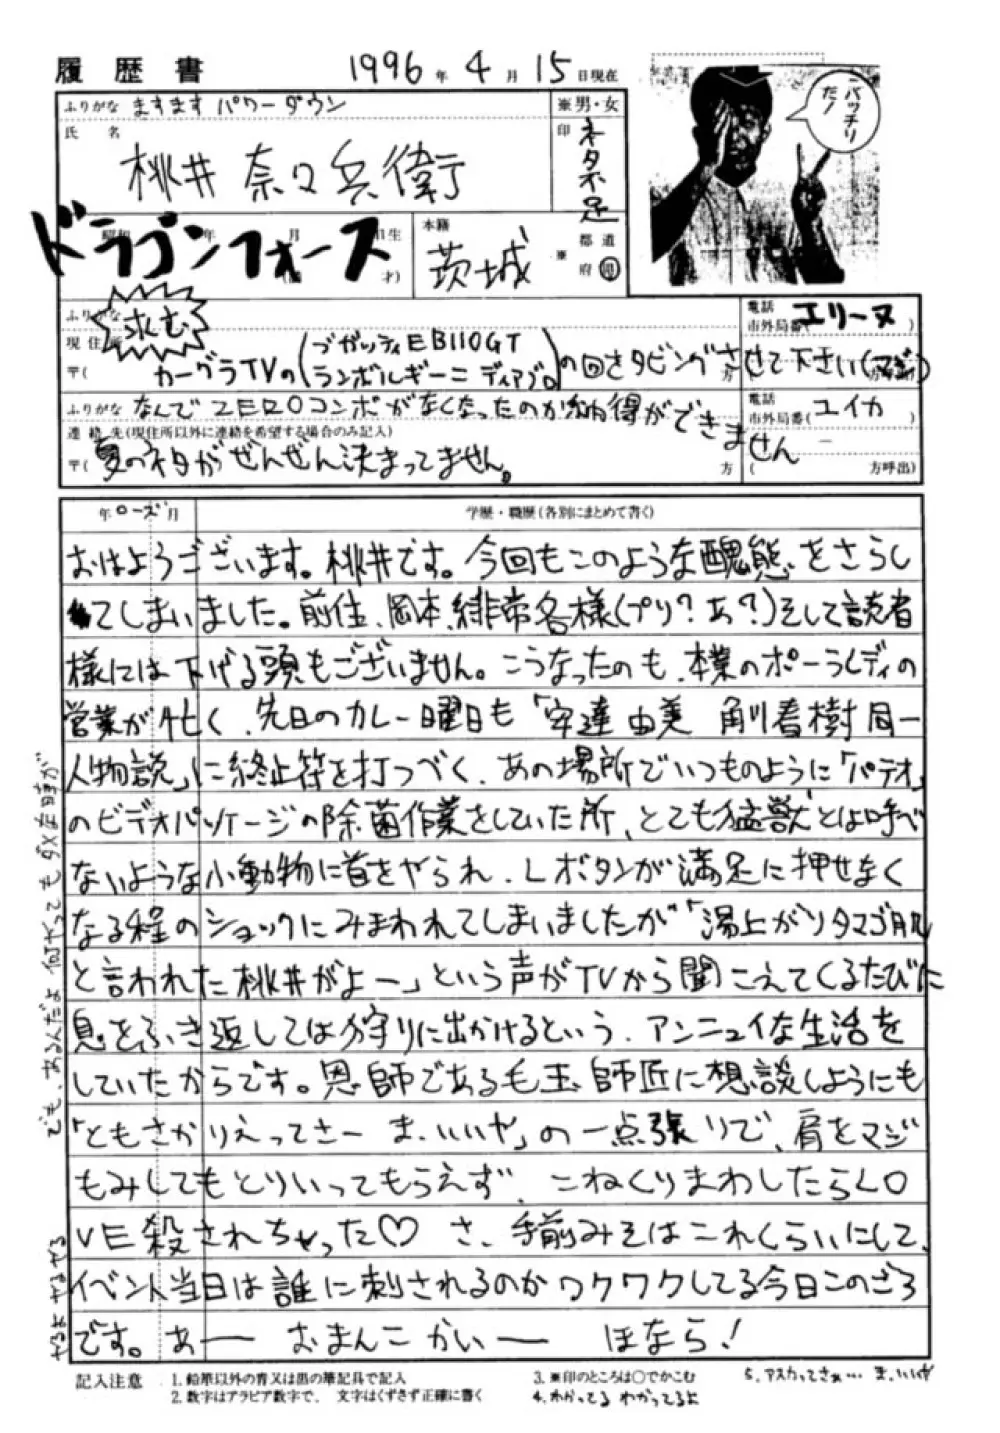 履歴書 1996年4月15日現在
ふりがな ますます パワーダウン
※男・女
氏名
桃井 奈々兵衛
印
ネタ不足
バッチリだ!
ドラゴンフォース
本籍
茨城
※ 都道府県
ふりがな
求む
現住所
〒( カーグラTVの(ブガッティEB110GT ランボルギーニ ディアブロ)の回をダビングさせて下さい(マジ)
電話
市外局番( エリーヌ )
ふりがな なんでZEROコンボがなくなったのか納得ができません
連絡先(現住所以外に連絡を希望する場合のみ記入)
〒( 夏のネタがぜんぜん決まってません。 方
電話
市外局番( ユイカ )
( 方呼出)
年 ローズ 月 学歴・職歴(各別にまとめて書く)
おはようございます。桃井です。今回もこのような醜態をさらし
てしまいました。前住、岡本、緋常各様(プリ?あ?)そして読者
様には下げる頭もございません。こうなったのも、本業のポーラレディの
営業が忙しく、先日のカレー曜日も「安達由美 角川春樹同一
人物説」に終止符を打つべく、あの場所でいつものように「パテオ」
のビデオパッケージの除菌作業をしていた所、とても猛獣とは呼べ
ないような小動物に首をやられ、Lボタンが満足に押せなく
なる程のショックにみまわれてしまいましたが「湯上がりタマゴ肌
と言われた桃井がよー」という声がTVから聞こえてくるたびに
息をふき返しては狩りに出かけるという、アンニュイな生活を
していたからです。恩師である毛玉師匠に想談しようにも
「ともさかりえってさー ま、いいや」の一点張りで、肩をマジ
もみしてもとりいってもらえず、こねくりまわしたらLO
VE殺されちゃった♡ さ、手前みそはこれくらいにして、
イベント当日は誰に刺されるのかワクワクしてる今日このごろ
です。あー おまんこかいー ほなら!
でも、あるんだよ 何やってもダメな時が
やるよ やるやる
記入注意 1. 鉛筆以外の青又は黒の筆記具で記入
2. 数字はアラビア数字で、文字はくずさず正確に書く
3. ※印のところは○でかこむ
4. わかってる わかってるよ
5. アスカってさぁ… ま、いいや